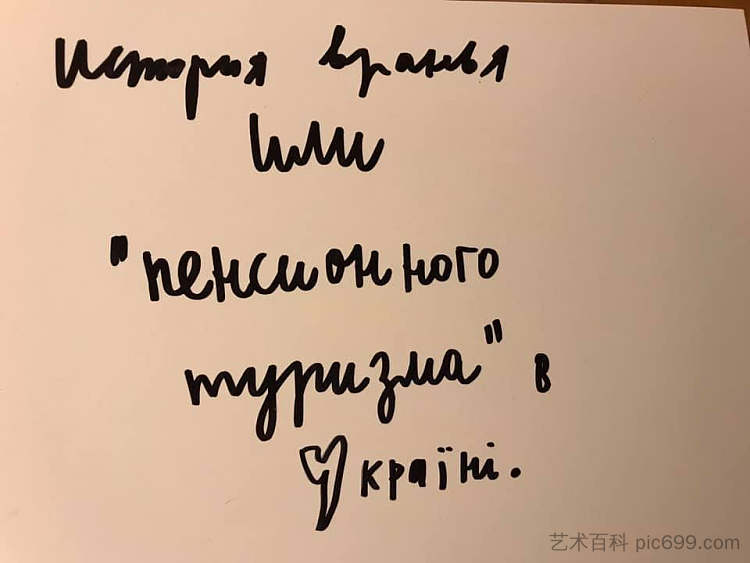 История вранья
или
"пенсионного
туризма" в
Україні.
艺术百科 pic699.com